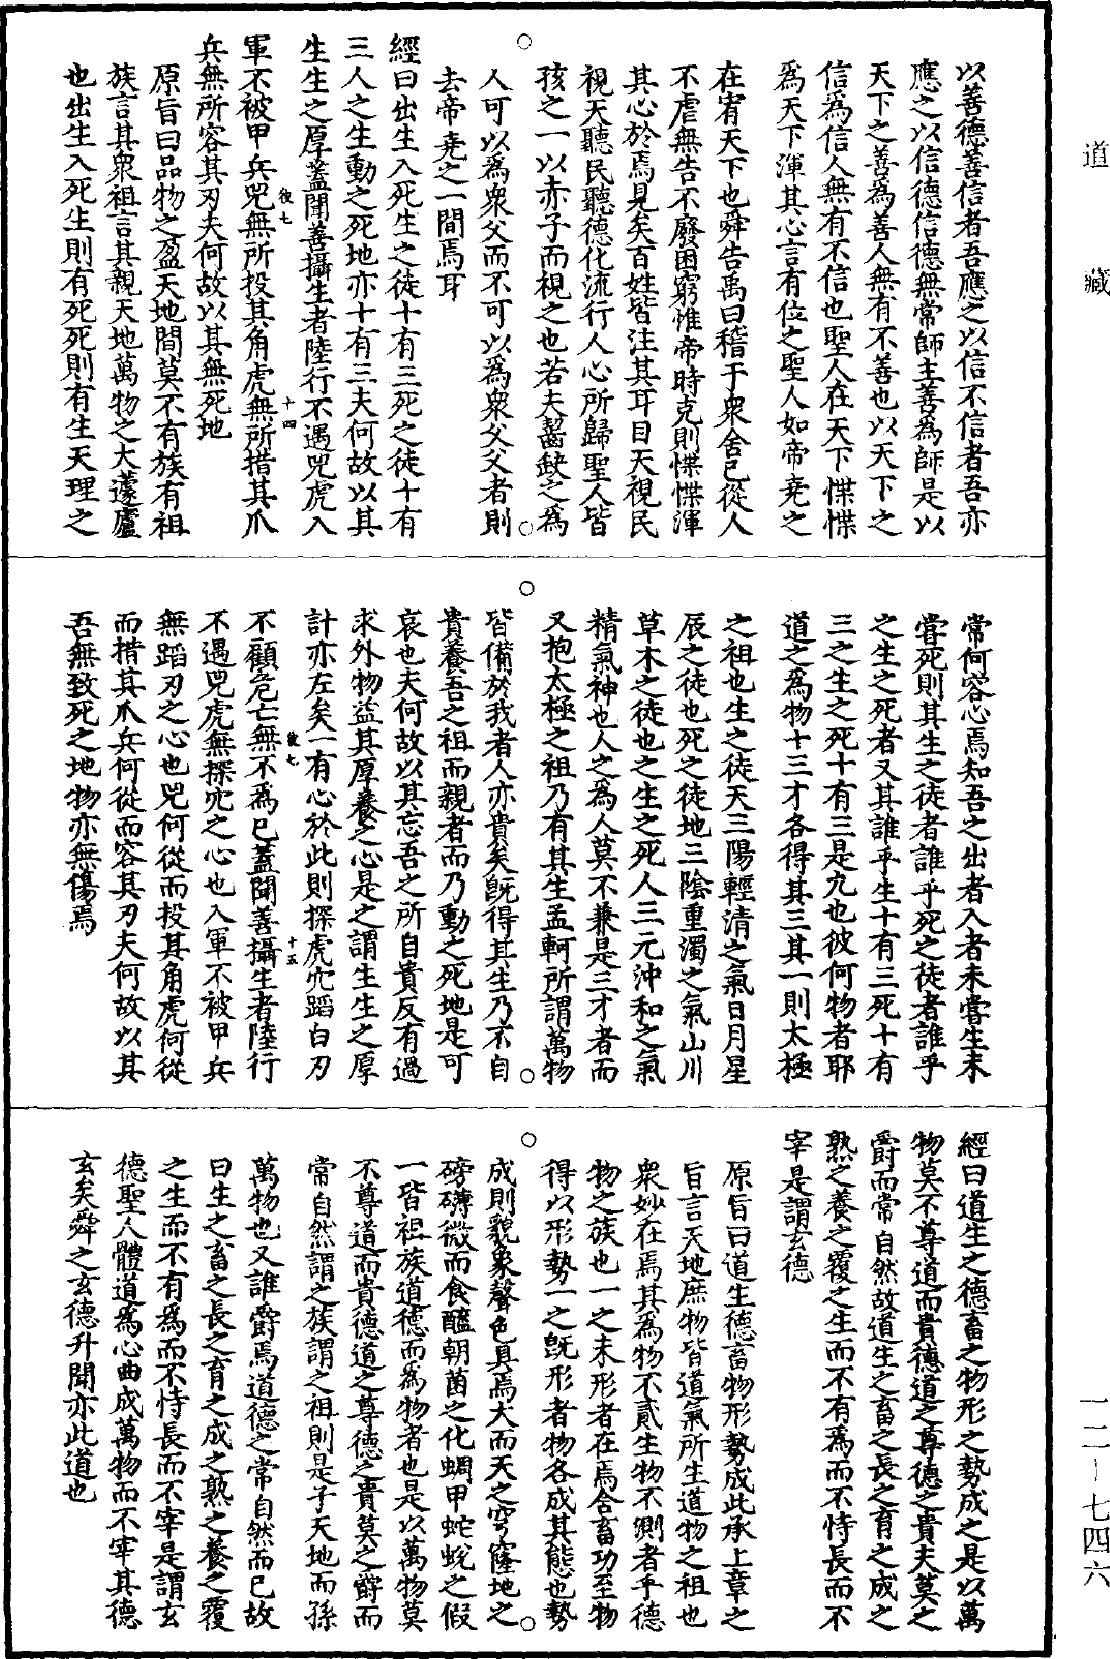 道藏
以善德善信者吾應之以信不信者吾亦
應之以信德信德無常師主善為師是以
天下之善為善人無有不善也以天下之
信為信人無有不信也聖人在天下惵惵
為天下渾其心言有位之聖人如帝堯之
在宥天下也舜告禹曰稽于衆舍已從人
不虐無告不廢困窮惟帝時克則惵惵渾
其心於焉見矣百姓皆注其耳目天視民
視天聽民聽德化流行人心所歸聖人皆
孩之一以赤子而視之也若夫齧缺之為
人可以為衆父而不可以為衆父父者則
去帝堯之一間焉耳
經曰出生入死生之徒十有三死之徒十有
三人之生動之死地亦十有三夫何故以其
生生之厚蓋聞善攝生者陸行不遇兕虎入
後七
十四
軍不被甲兵兕無所投其角虎無所措其爪
兵無所容其刃夫何故以其無死地
原旨曰品物之盈天地間莫不有族有祖
族言其衆祖言其親天地萬物之大蘧廬
也出生入死生則有死死則有生天理之
常何容心焉知吾之出者入者未嘗生未
嘗死則其生之徒者誰乎死之徒者誰乎
之生之死者又其誰乎生十有三死十有
三之生之死十有三是宂也彼何物者耶
道之為物十三才各得其三其一則太極
之祖也生之徒天三陽輕清之氣日月星
辰之徒也死之徒地三陰重濁之氣山川
草木之徒也之生之死人三元沖和之氣
精氣神也人之為人莫不兼是三才者而
又抱太極之祖乃有其生孟軻所謂萬物
皆備於我者人亦貴矣旣得其生乃不自
貴養吾之祖而親者而乃動之死地是可
哀也夫何故以其忘吾之所自貴反有過
求外物益其厚養之心是之謂生生之厚
計亦左矣一有心於此則探虎穴蹈白刃
後七
十五
不顧危亡無不為已蓋聞善攝生者陸行
不遇兕虎無探穴之心也入軍不被甲兵
無蹈刃之心也兕何從而投其角虎何從
而措其爪兵何從而容其刃夫何故以其
吾無致死之地物亦無傷焉
經曰道生之德畜之物形之勢成之是以萬
物莫不尊道而貴德道之尊德之貴夫莫之
爵而常自然故道生之畜之長之育之成之
熟之養之覆之生而不有為而不恃長而不
宰是謂玄德
原旨曰道生德畜物形勢成此承上章之
旨言天地庶物皆道氣所生道物之祖也
衆妙在焉其為物不貳生物不測者乎德
物之族也一之未形者在焉含畜功至物
得以形勢一之旣形者物各成其態也勢
成則貌象聲色具焉大而天之穹窿地之
磅礴微而食醯朝菌之化蜩甲蛇蛻之假
一皆祖族道德而為物者也是以萬物莫
不尊道而貴德道之尊德之貴莫之爵而
常自然謂之族謂之祖則是子天地而孫
萬物也又誰爵焉道德之常自然而已故
曰生之畜之長之育之成之熟之養之覆
之生而不有為而不恃長而不宰是謂玄
德聖人體道為心曲成萬物而不宰其德
玄矣舜之玄德升聞亦此道也
一二-七四六